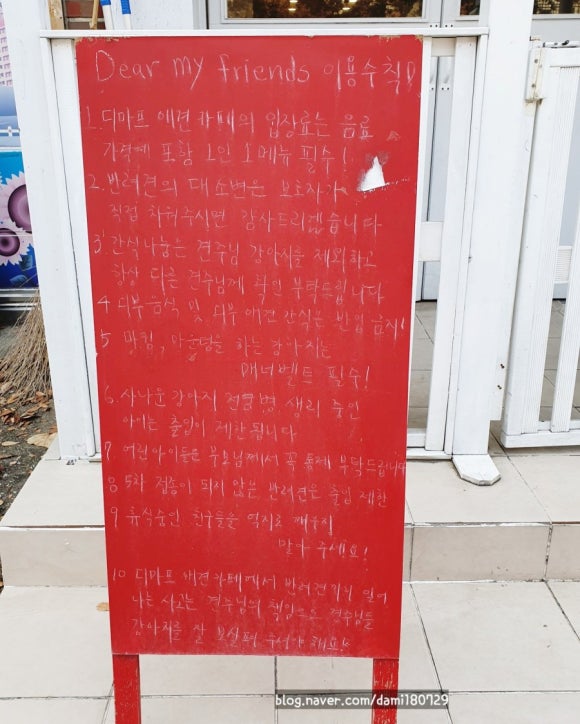 Dear my friends 이용수칙!
1. 디마프 애견카페의 입장료는 음료
가격에 포함 1인 1메뉴 필수!
2. 반려견의 대소변은 보호자가
직접 치워주시면 감사드리겠습니다
3. 간식나눔은 견주님 강아지를 제외하고
항상 다른 견주님께 확인 부탁드립니다
4 외부음식 및 외부 애견 간식은 반입 금지!
5 마킹, 마운팅을 하는 강아지는
매너벨트 필수!
6. 사나운 강아지 전염병, 생리 중인
아이는 출입이 제한됩니다
7. 어린아이들은 부모님께서 꼭 통제 부탁드립니다
8 5차 접종이 되지 않는 반려견은 출입 제한
9 휴식중인 친구들을 억지로 깨우지
말아 주세요!
10 디마프 애견카페에서 반려견끼리 일어
나는 사고는 견주님의 책임으로 견주님들
강아지를 잘 보살펴 주셔야 해요!
blog.naver.com/dami180729